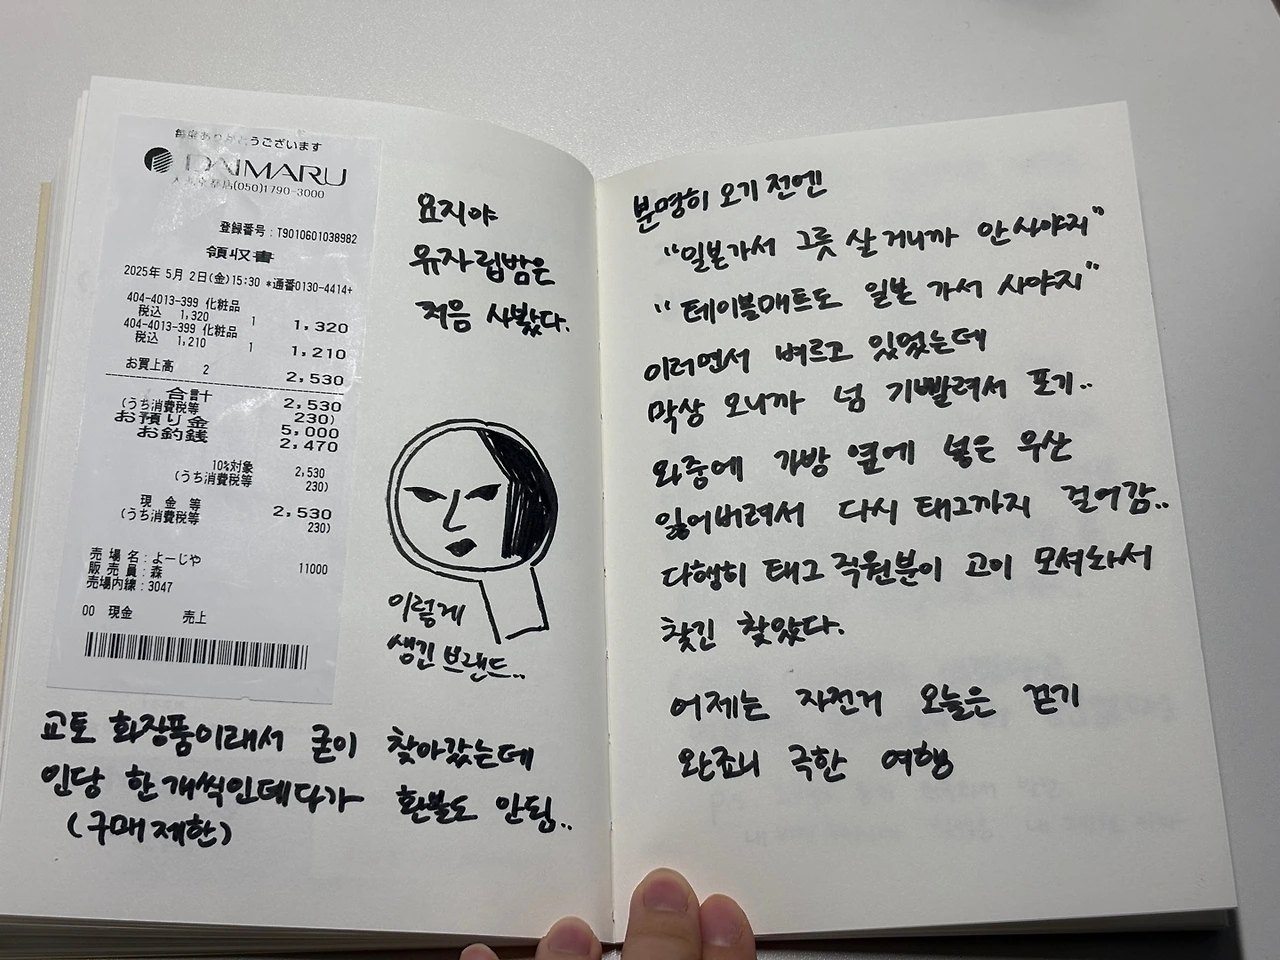 毎度ありがとうございます
DAIMARU
店(050)1790-3000
登録番号:T9010601038982
領収書
2025年 5月 2日(金)15:30 *通番0130-4414+
404-4013-399 化粧品
税込 1,320 1 1,320
404-4013-399 化粧品
税込 1,210 1 1,210
お買上高 2 2,530
合計 2,530
(うち消費税等 230)
お預り金 5,000
お釣銭 2,470
10%対象 2,530
(うち消費税等 230)
現 金 等 2,530
(うち消費税等 230)
売 場 名:よーじや 11000
販 売 員:森
売場内線:3047
00 現金 売上
요지야
유자립밤은
처음 사봤다.
이렇게
생긴 브랜드..
교토 화장품이래서 굳이 찾아갔는데
인당 한개씩인데다가 환불도 안됨..
(구매제한)
분명히 오기 전엔
"일본가서 그릇 살거니까 안사야지"
"테이블매트도 일본 가서 사야지"
이러면서 벼르고 있었는데
막상 오니까 넘 기빨려서 포기..
와중에 가방 옆에 넣은 우산
잃어버려서 다시 태그까지 걸어감..
다행히 태그 직원분이 고이 모셔놔서
찾긴 찾았다.
어제는 자전거 오늘은 걷기
완죠니 극한 여행